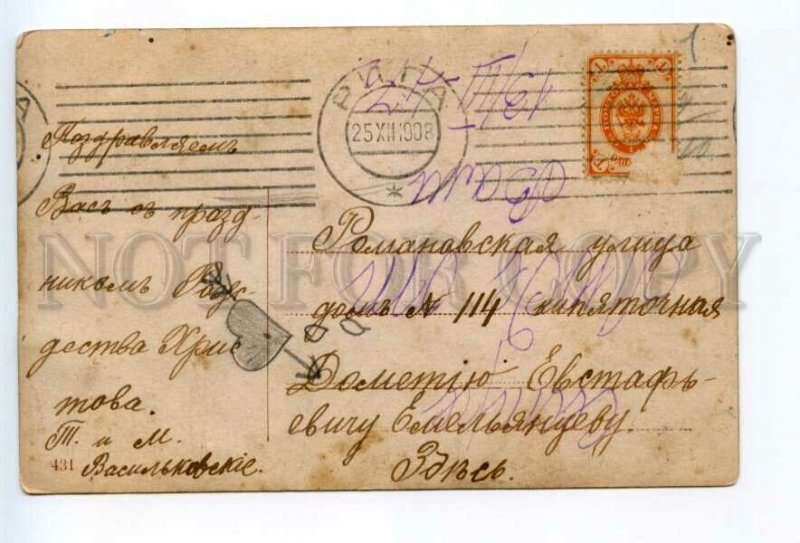 РИГА
25 XII 1908
Поздравляемъ
Васъ съ празд-
никомъ Рож-
дества Хрис-
това.
Т. и М.
Васильковскіе.
431
Романовская улица
домъ № 114 кипяточная
Дометію Евстафь-
евичу Емельянцеву.
Здѣсь.
NOT FOR COPY